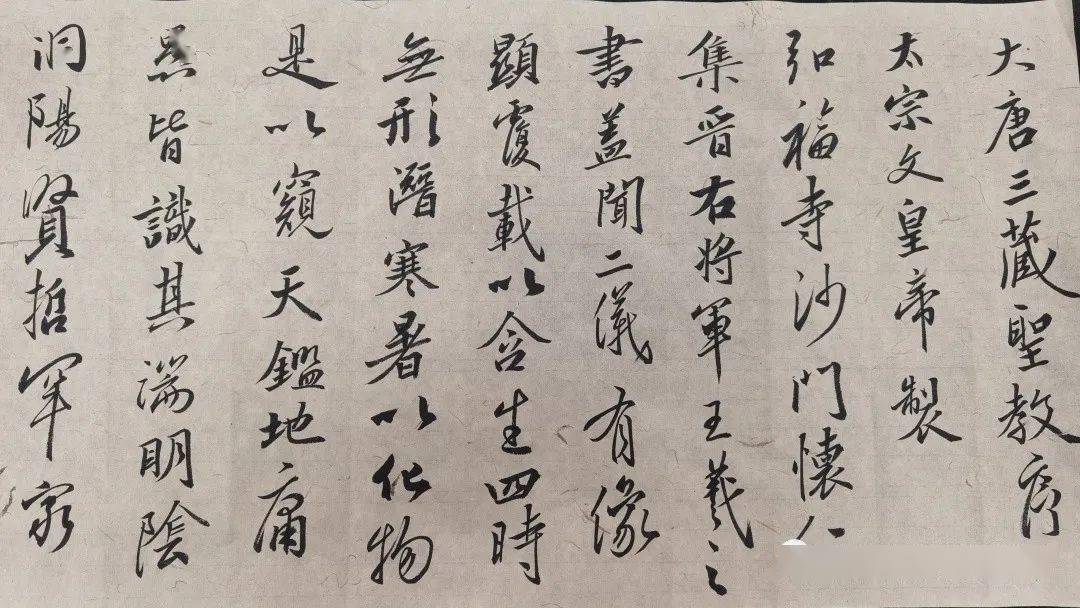 大唐三藏聖教序
太宗文皇帝製
弘福寺沙門懷仁
集晉右將軍王羲之
書蓋聞二儀有像
顯覆載以含生四時
無形潛寒暑以化物
是以窺天鑑地庸
愚皆識其端明陰
洞陽賢哲罕窮